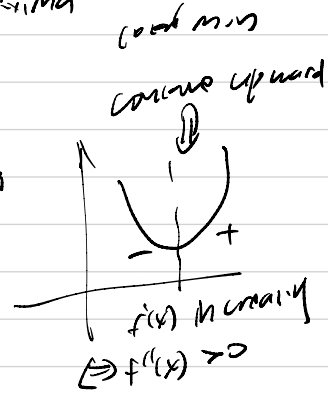 local min
concave upward
⇕
- +
f'(x) increasing
⇔ f''(x) > 0